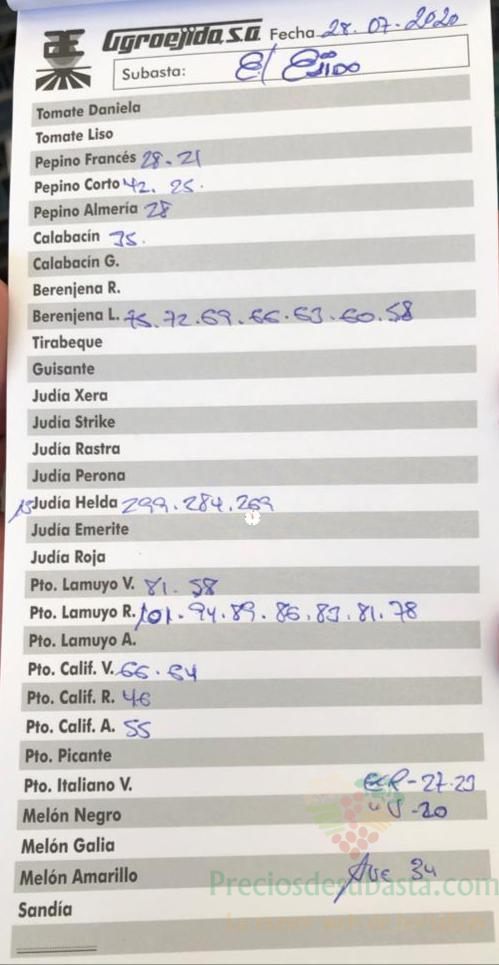 AE Agroejido, s.a. Fecha 28.07.2020
Subasta: El Ejido
Tomate Daniela
Tomate Liso
Pepino Francés 28.21
Pepino Corto 42. 25.
Pepino Almería 28
Calabacín 35.
Calabacín G.
Berenjena R.
Berenjena L. 75.72.69.66.63.60.58
Tirabeque
Guisante
Judía Xera
Judía Strike
Judía Rastra
Judía Perona
Judía Helda 299.284.269
Judía Emerite
Judía Roja
Pto. Lamuyo V. 81.58
Pto. Lamuyo R. 101.94.89.86.83.81.78
Pto. Lamuyo A.
Pto. Calif. V. 66.64
Pto. Calif. R. 46
Pto. Calif. A. 55
Pto. Picante
Pto. Italiano V.
Melón Negro
Melón Galia
Melón Amarillo
Preciosdesubasta.com
Sandía